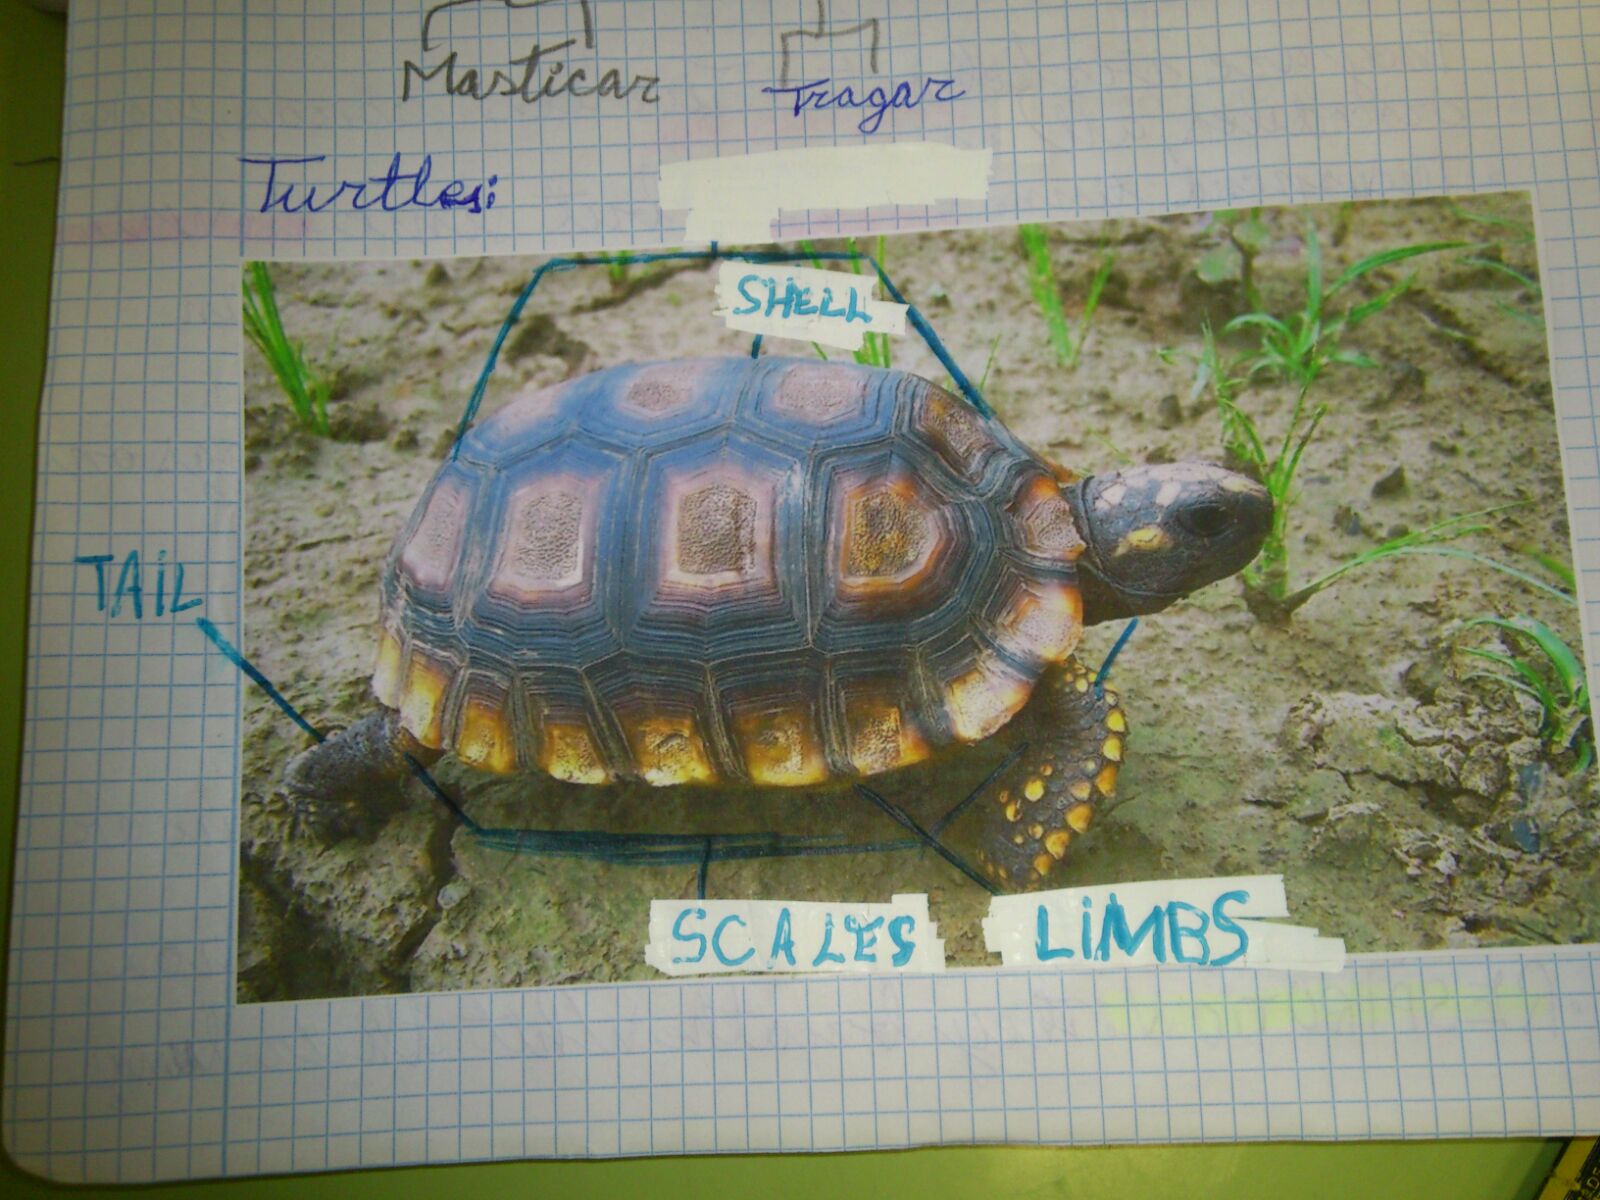 Masticar Tragar
Turtles:
SHELL
TAIL
SCALES LIMBS